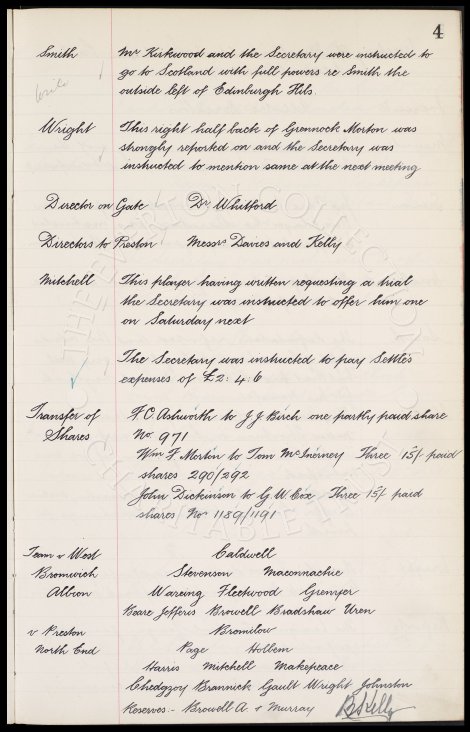 4
Smith Mr Kirkwood and the Secretary were instructed to
go to Scotland with full powers re Smith the
write outside left of Edinburgh Hibs.
Wright This right half back of Grennock Morton was
strongly reported on and the Secretary was
instructed to mention same at the next meeting
Director on Gate Dr Whitford
Directors to Preston Messrs Davies and Kelly
Mitchell This player having written requesting a trial
the Secretary was instructed to offer him one
on Saturday next
The Secretary was instructed to pay Settle's
expenses of £2:4:6
Transfer of F C Ashworth to J J Birch one partly paid share
Shares No 971
Wm F Mortin to Tom McInerney Three 15/- paid
shares 290/292
John Dickinson to G W Cox Three 15/- paid
shares Nos 1189/1191
Team v West Caldwell
Bromwich Stevenson Maconnachie
Albion Wareing Fleetwood Grenyer
Beare Jefferis Browell Bradshaw Uren
v Preston Bromilow
North End Page Holbem
Harris Mitchell Makepeace
Chedgzoy Brannick Gault Wright Johnston
Reserves:- Browell A. & Murray
THE EVERTON COLLECTION
CHARITABLE TRUST